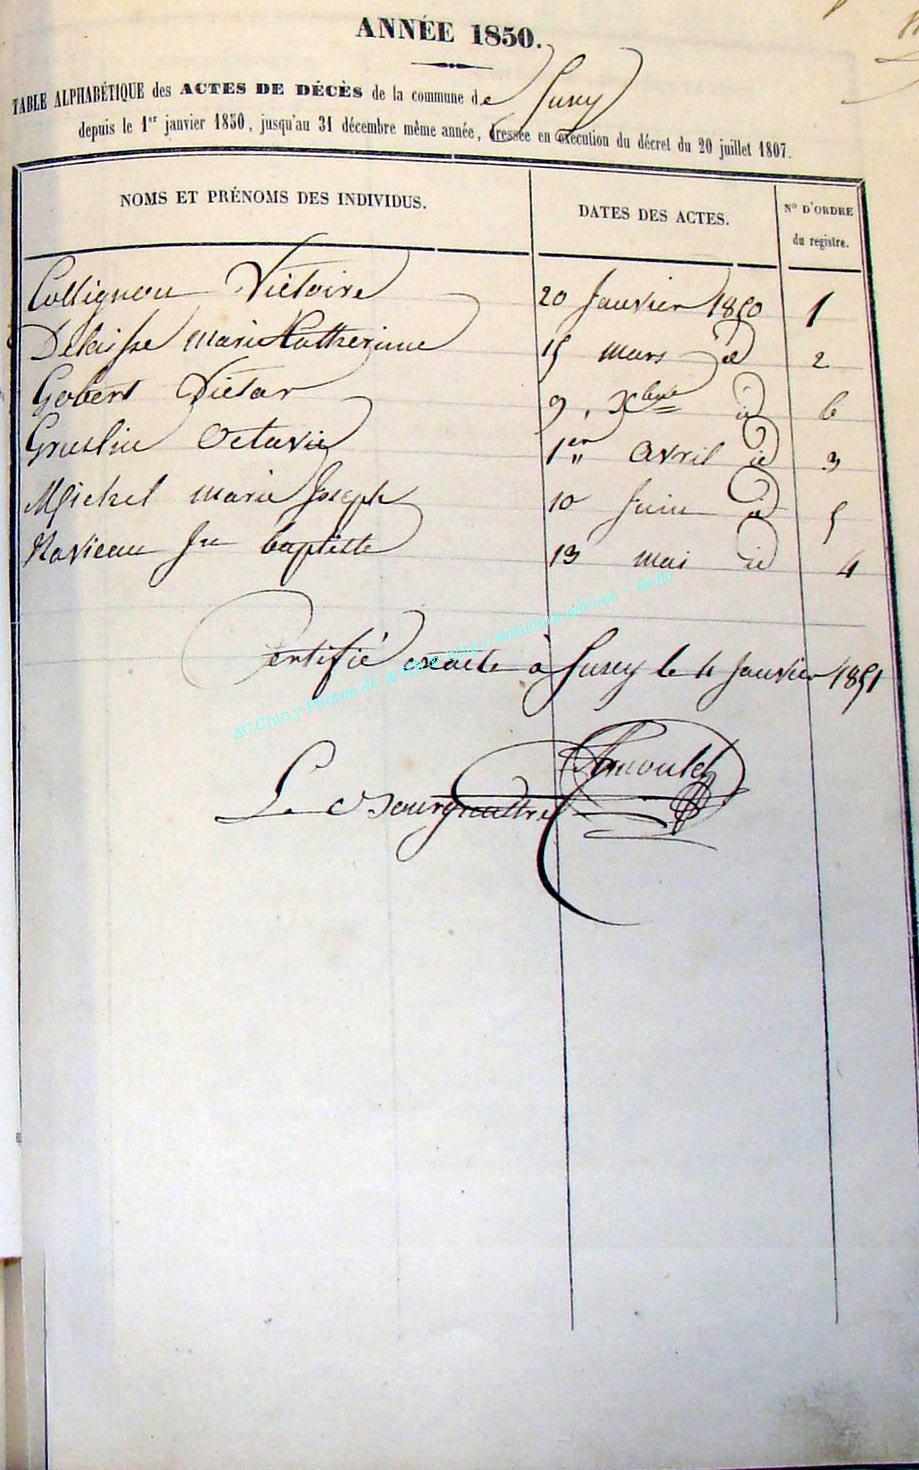 ANNÉE 1850.
TABLE ALPHABÉTIQUE des ACTES DE DÉCÈS de la commune de Suxy
depuis le 1er janvier 1850, jusqu'au 31 décembre même année, dressée en exécution du décret du 20 juillet 1807.
NOMS ET PRÉNOMS DES INDIVIDUS. DATES DES ACTES. N° D'ORDRE du registre.
Collignon Victoire 20 Janvier 1850 1
Delaisse Marie Catherine 15 Mars id 2
Gobert Victor 9, Xbre id 6
Gruslin Octavie 1er Avril id 3
Michel Marie Joseph 10 Juin id 5
Naviaux Jn baptiste 13 Mai id 4
Certifié exacte à Suxy le 4 Janvier 1851
Le Bourgmestre
AC Chiny Photos JC &